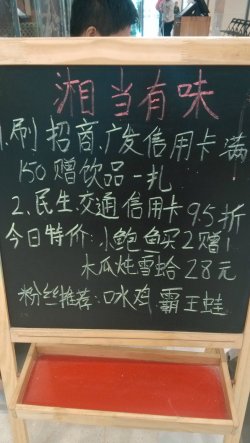 湘当有味
1.刷招商、广发信用卡满
150赠饮品一扎!
2.民生.交通信用卡95折
今日特价:小鲍鱼买2赠1
木瓜炖雪蛤28元
粉丝推荐:口水鸡.霸王蛙